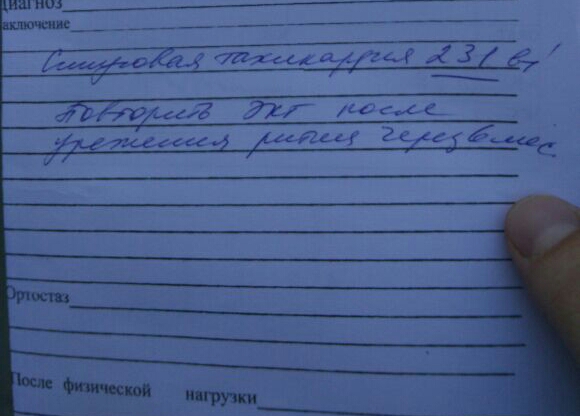 диагноз
заключение
Синусовая тахикардия 231 в 1'
Повторить ЭКГ после
урежения ритма через 6 мес.
Ортостаз
После физической нагрузки